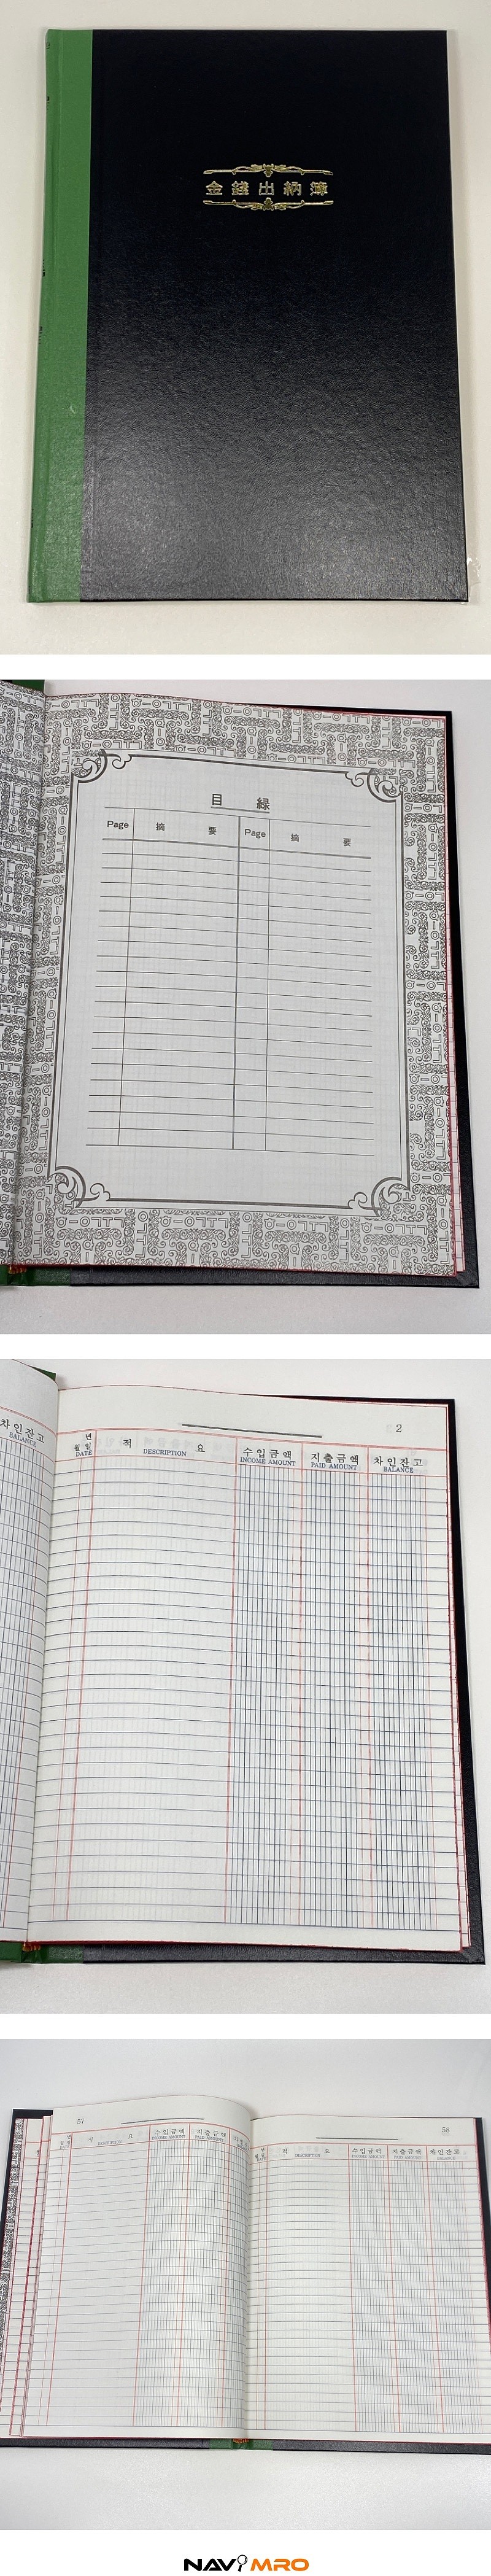 金錢出納簿
目 録
Page 摘 要 Page 摘 要
차인잔고
BALANCE
2
년
월 일 적 요 수입금액 지출금액 차인잔고
DATE DESCRIPTION INCOME AMOUNT PAID AMOUNT BALANCE
57
년
월 일 적 요 수입금액 지출금액
DESCRIPTION INCOME AMOUNT PAID AMOUNT
58
년
월 일 적 요 수입금액 지출금액 차인잔고
DESCRIPTION INCOME AMOUNT PAID AMOUNT BALANCE
NAVIMRO